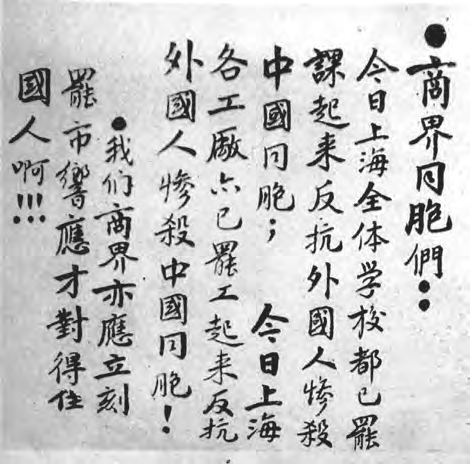 ●商界同胞們：
今日上海全体学校都已罷
課起来反抗外國人惨殺
中國同胞；　今日上海
各工廠亦已罷工起来反抗
外國人惨殺中國同胞！
●我们商界亦應立刻
罷市響應才對得住
國人啊!!!